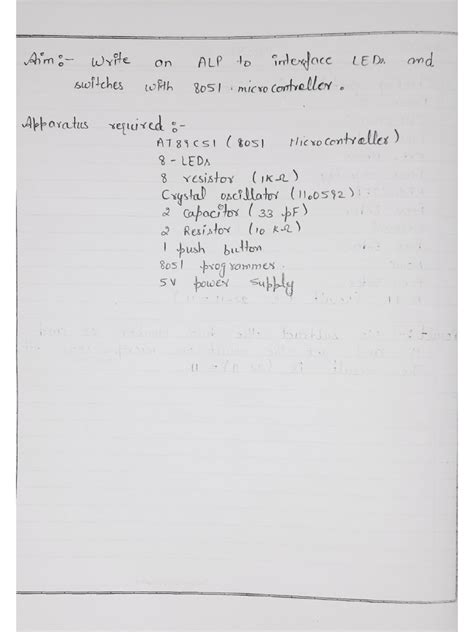 Aim:- Write an ALP to interface LEDs and
switches with 8051 microcontroller.
Apparatus required :-
AT89C51 ( 8051 Microcontroller)
8 - LEDs
8 resistor (1KΩ)
Crystal oscillator (11.0592)
2 capacitor (33 pF)
2 Resistor (10 KΩ)
1 push button
8051 programmer
5V power supply